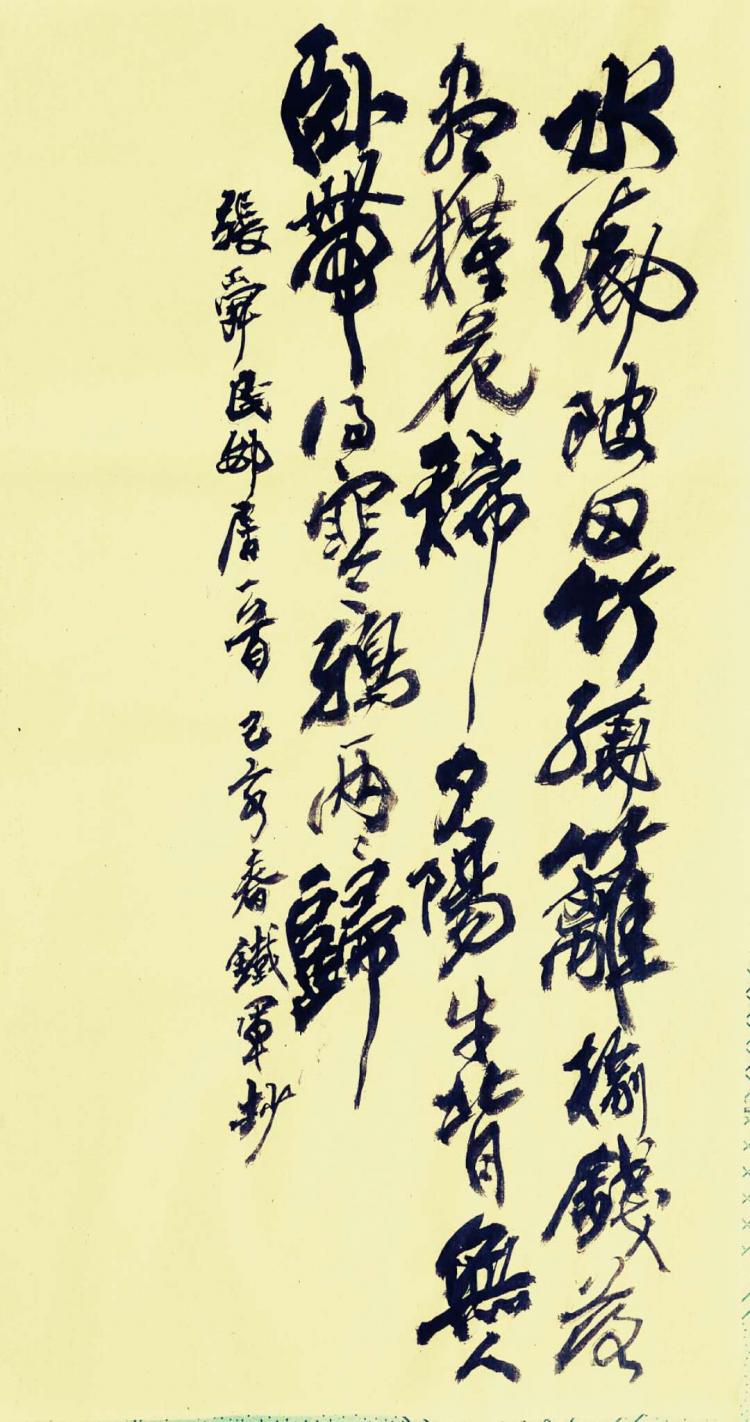 水繞陂田竹繞籬榆錢落
盡槿花稀夕陽牛背無人
卧帶得寒鴉兩々歸
張舜民邨居一首己亥春鐵軍抄